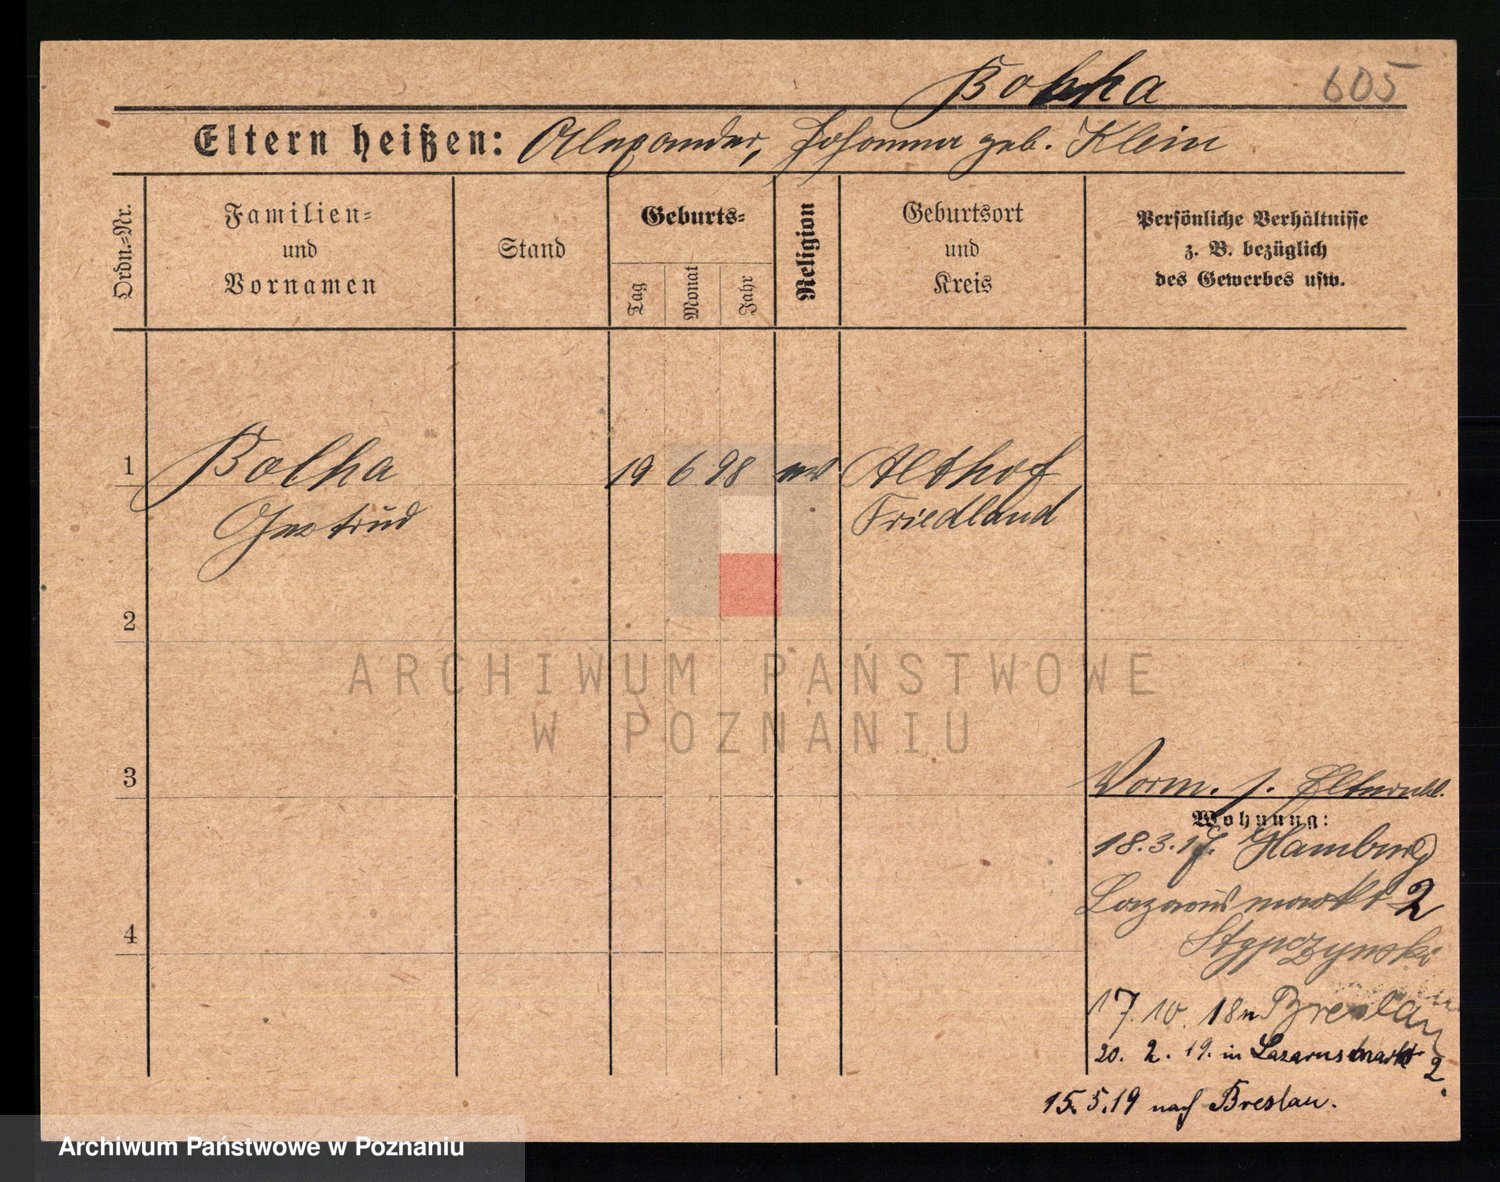 Bolka
605
Eltern heißen: Alexander, Johanna geb. Klein
Ordn.=Nr.
Familien=
und
Vornamen
Stand
Geburts=
Tag
Monat
Jahr
Religion
Geburtsort
und
Kreis
Persönliche Verhältnisse
z. B. bezüglich
des Gewerbes usw.
1 Bolka 19 6 98 Althof
Gertrud Friedland
2
3
4
Vorm. s. Elternbl.
Wohnung:
18.3.17. Hamburg
Lazarusmarkt 2
Stypczynski
17. 10. 18 n Breslau
20. 2. 19. in Lazarusmarkt 2.
15.5.19 nach Breslau.
ARCHIWUM PAŃSTWOWE
W POZNANIU
Archiwum Państwowe w Poznaniu